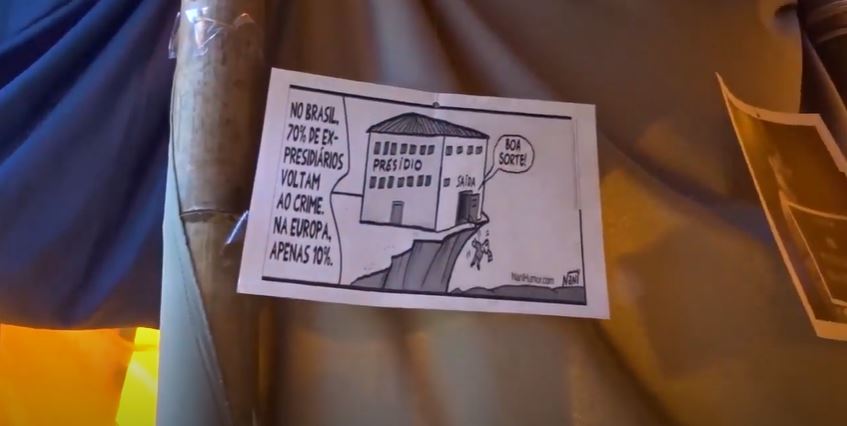 NO BRASIL,
70% DE EX-
PRESIDIÁRIOS
VOLTAM
AO CRIME.
NA EUROPA,
APENAS 10%.
PRESÍDIO
SAÍDA
BOA
SORTE!
NaniHumor.com
NANI